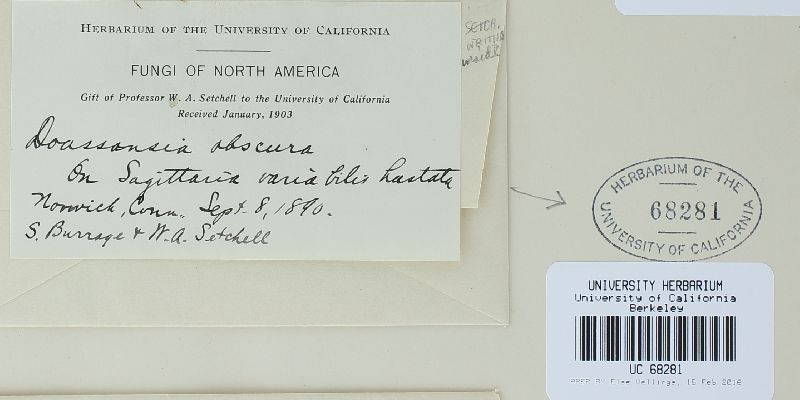 HERBARIUM OF THE UNIVERSITY OF CALIFORNIA
FUNGI OF NORTH AMERICA
Gift of Professor W. A. Setchell to the University of California
Received January, 1903
Doassansia obscura
On Sagittaria variabilis hastata
Norwich, Conn. Sept. 8, 1890.
S. Burrage & W. A. Setchell
SETCH.
HERBARIUM OF THE
68281
UNIVERSITY OF CALIFORNIA
UNIVERSITY HERBARIUM
University of California
Berkeley
UC 68281
PREP BY Else Vellinga, 15 Feb 2016